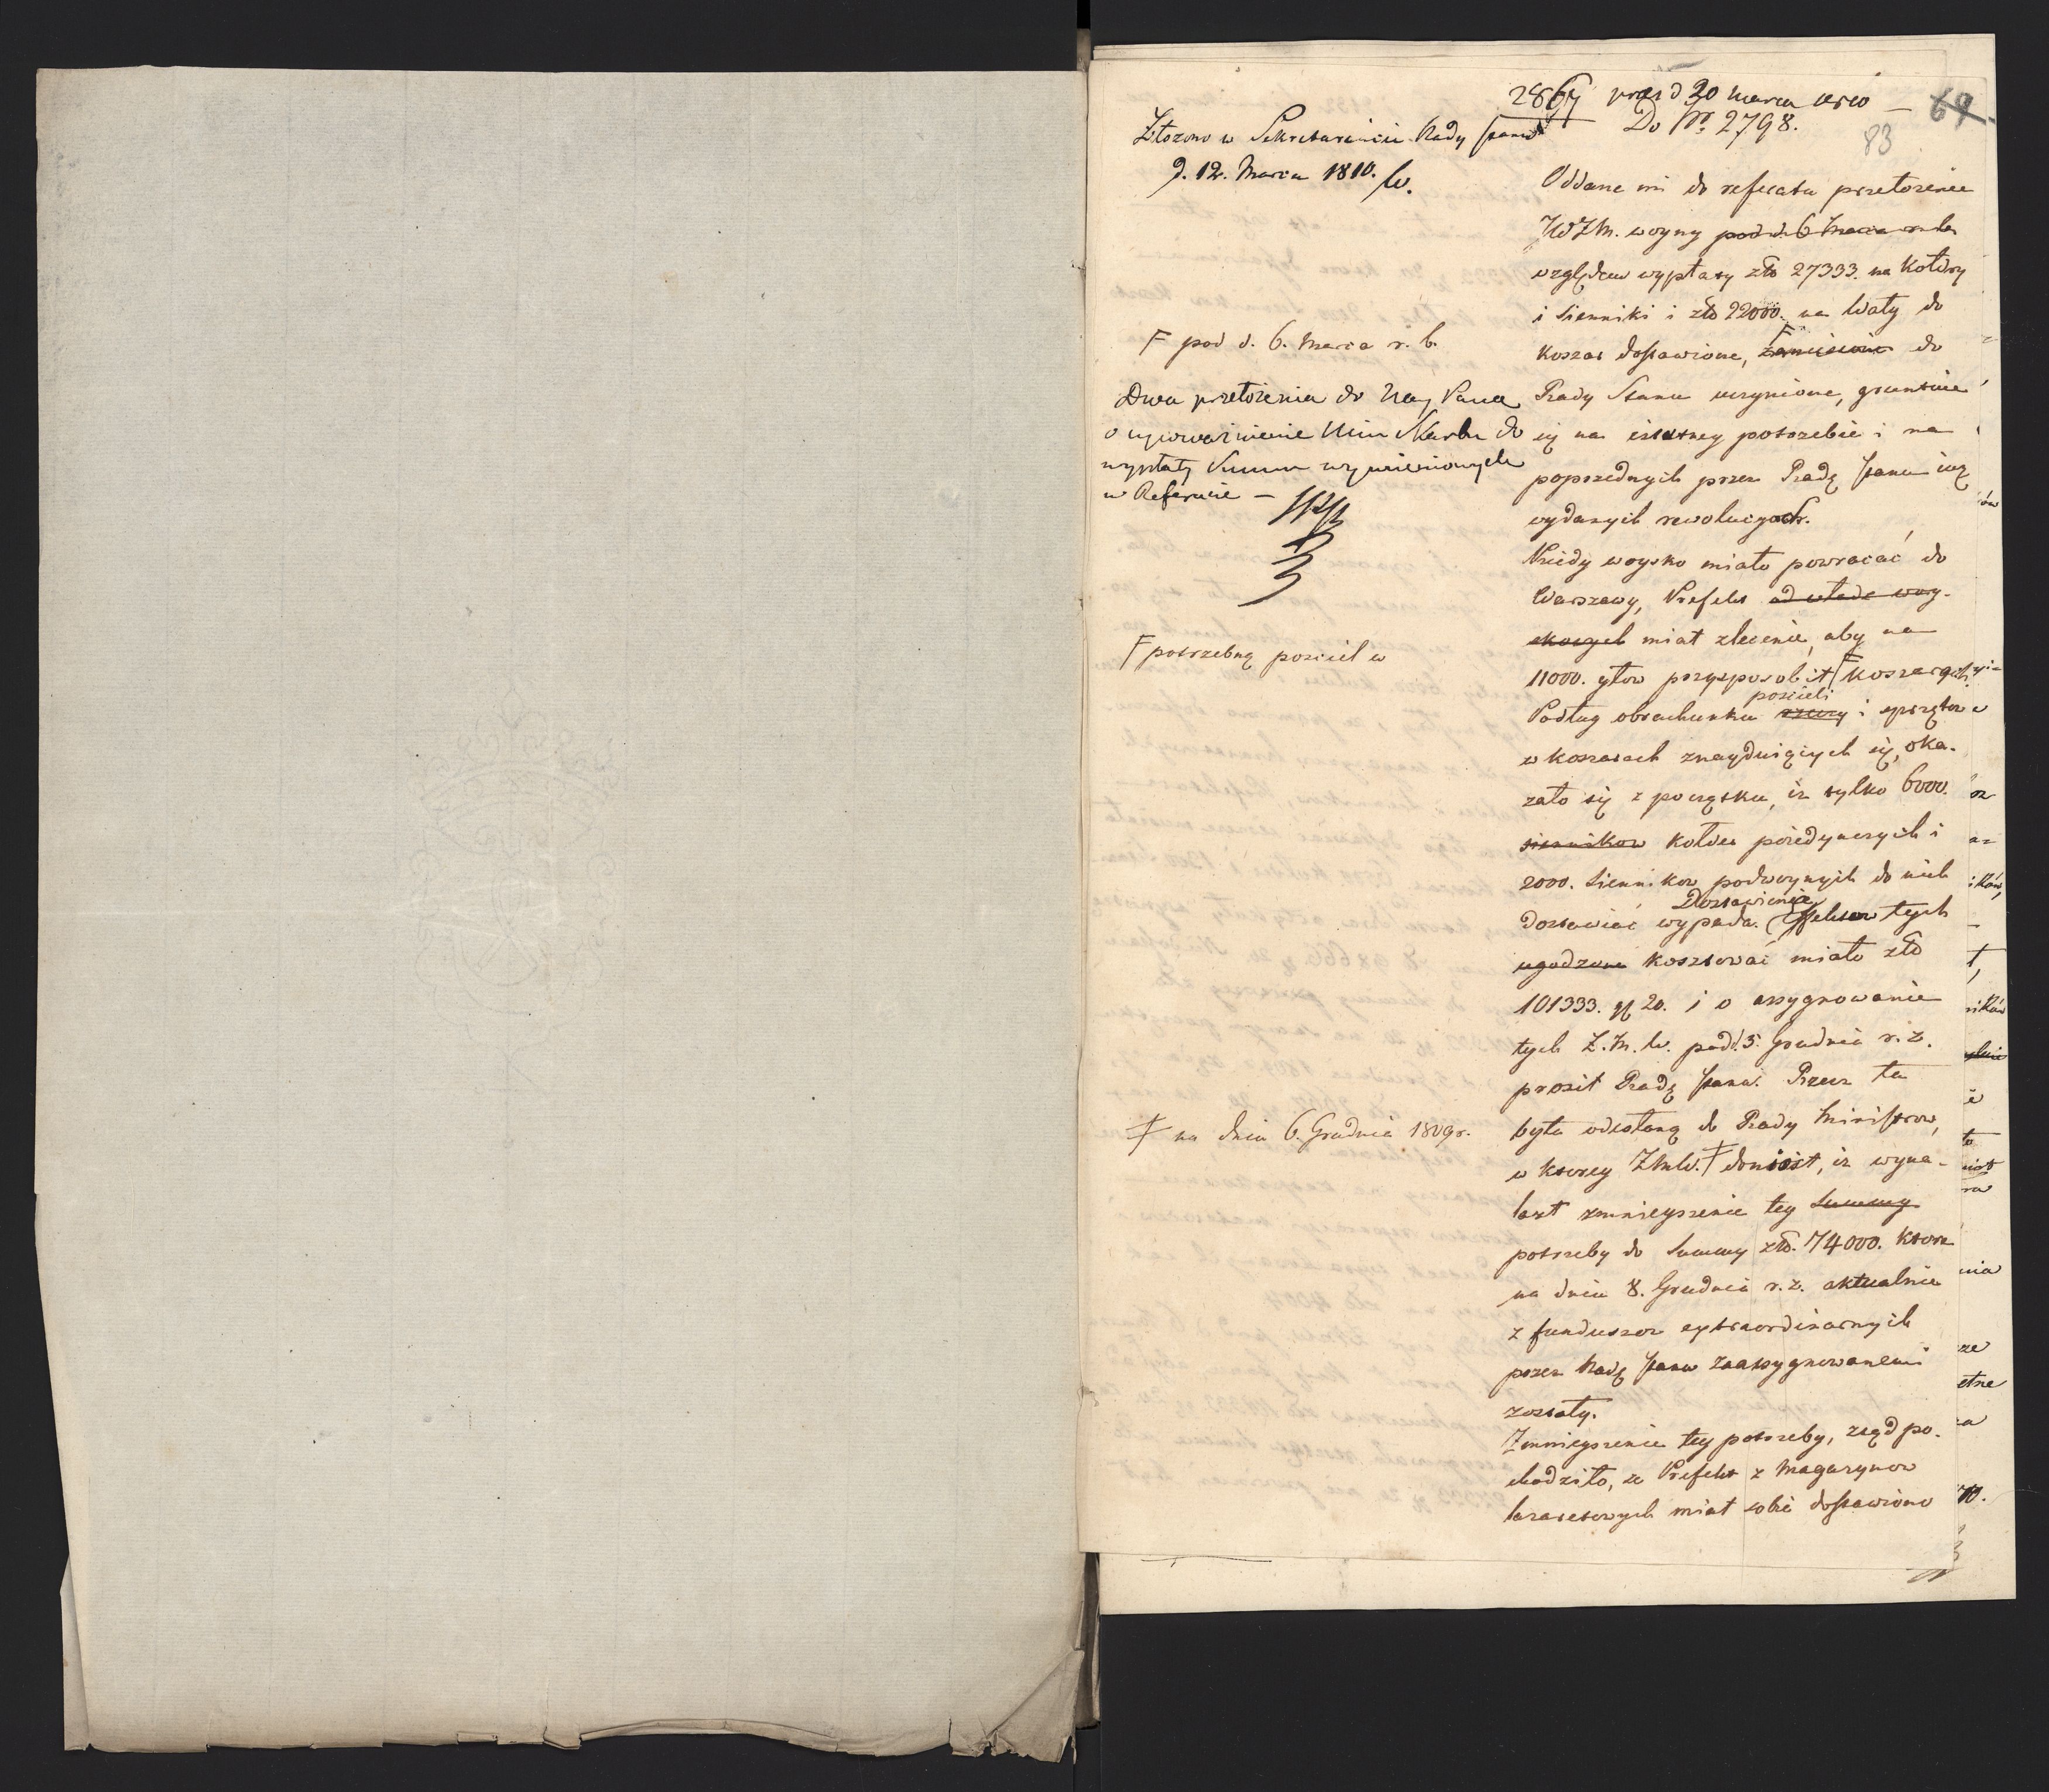 2867 praes d 20 marca 1810 — 69.
Do Nr. 2798.
83
Złożono w Sekretariacie Rady Stanu
d. 12. Marca 1810. 
F pod d. 6. Marca r. b.
Dwa przełożenia do Nay Pana
o upoważnienie Min Skarbu do
wypłaty Summ wymienionych
w Referacie —
F potrzebną posciel w
‡ na dniu 6. Grudnia 1809 r.
Oddane mi do referatu przełożenie
JWZM. woyny pod d. 6 Marca r. b.
względem wypłaty złt 27333. na Kołdry
i Sienniki i złt 22000. na Waty do
Koszar dostawione, F zaniesione do
Rady Stanu uczynione, gruntuie
się na istotney potrzebie i na
poprzednych przez Radę Stanu iuż
wydanych rezolucyach.
Kiedy woysko miało powracać do
Warszawy, Prefekt od władz woy-
skowych miał zlecenie, aby na
11000. głow przysposobił F Koszarach
Podług obrachunku rzeczy posciели i sprzętow
w koszarach znayduiących się, oka-
zało się z początku, iż tylko 6000.
siennikow kołder poiedynczych i
2000. Siennikow podwoynych do nich
dostawiać wypada. Dostawienie Effektow tych
ugodzone kosztować miało złt
101333. gr 20. i o assygnowanie
tych Z. M. W. pod d. 3. Grudnia r. z.
prosił Radę Stanu. Rzecz ta
była odesłaną do Rady Ministrow,
w ktorey ZMW. ‡ doniosł, iż wyna-
lazł zmnieyszenie tey Summy
potrzeby do Summy złt. 74000. ktore
na dniu 8. Grudnia r. z. aktualnie
z funduszow extraordinarnych
przez Radę Stanu zaassygnowanemi
zostały.
Zmnieyszenie tey potrzeby, ztąd po-
chodziło, że Prefekt z Magazynow
lazaretowych miał sobie dostawiono